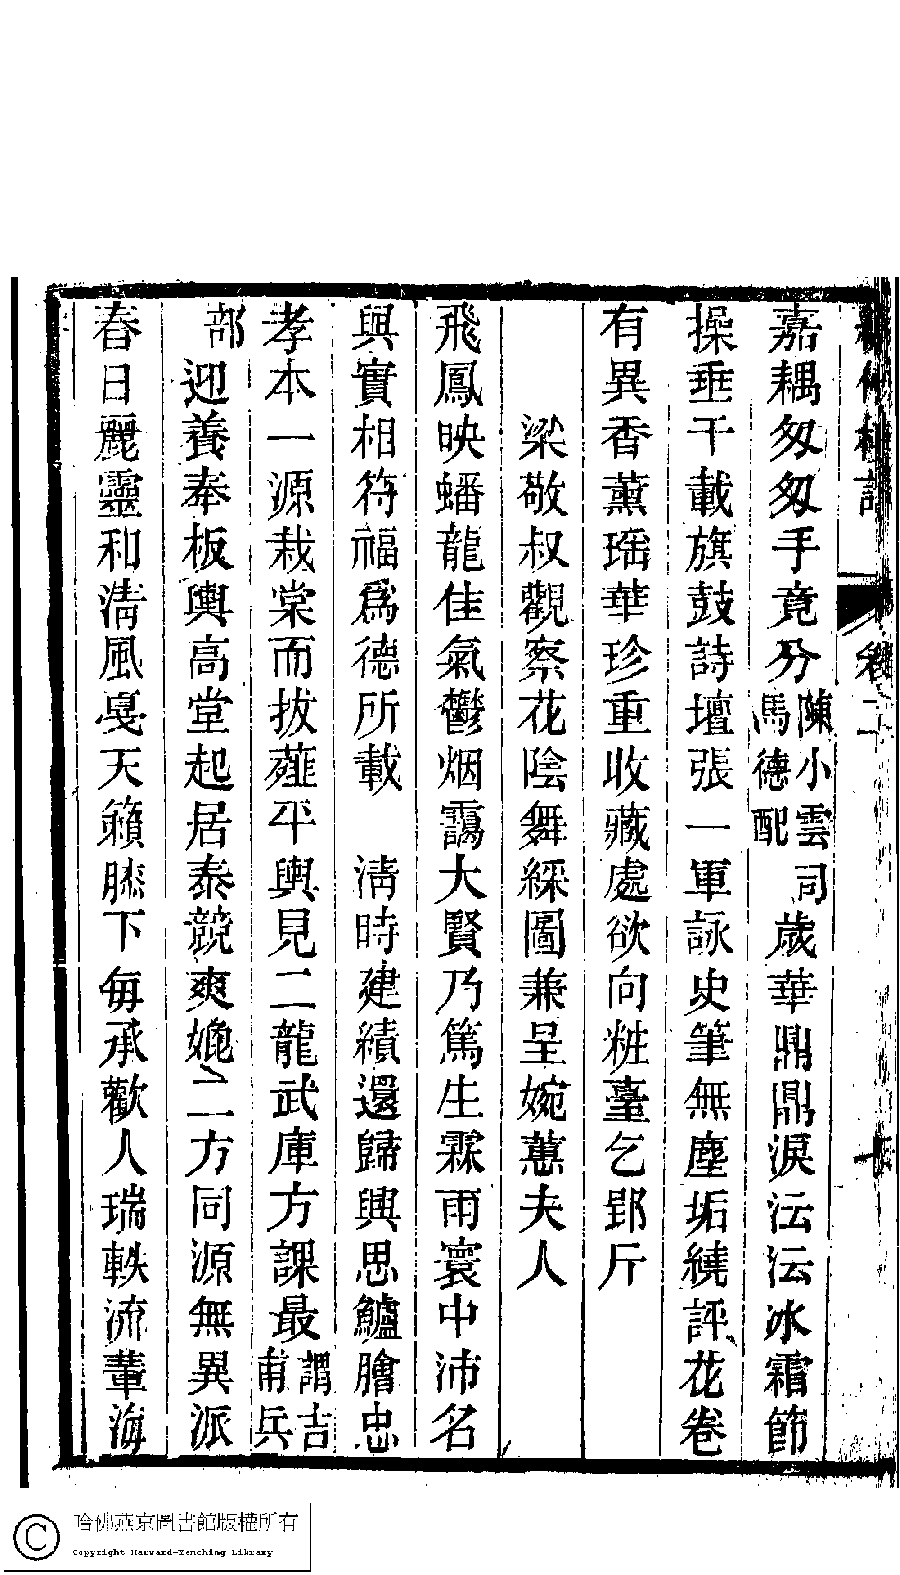 卷二
嘉耦匆匆手竟分陳小雲司馬德配歲華鼎鼎淚沄沄冰霜節
操垂千載旗鼓詩壇張一軍詠史筆無塵垢繞評花卷
有異香薰瑶華珍重收藏處欲向粧臺乞郢斤
梁敬叔觀察花陰舞綵圖兼呈婉蕙夫人
飛鳳映蟠龍佳氣鬱烟靄大賢乃篤生霖雨寰中沛名
與實相符福爲德所載　清時建績還歸興思鱸膾忠
孝本一源栽棠而拔薤平輿見二龍武庫方課最謂吉甫兵
部迎養奉板輿高堂起居泰競爽媲二方同源無異派
春日麗靈和清風戛天籟膝下每承歡人瑞軼流輩海
十
哈佛燕京圖書館版權所有
Copyright Harvard-Yenching Library